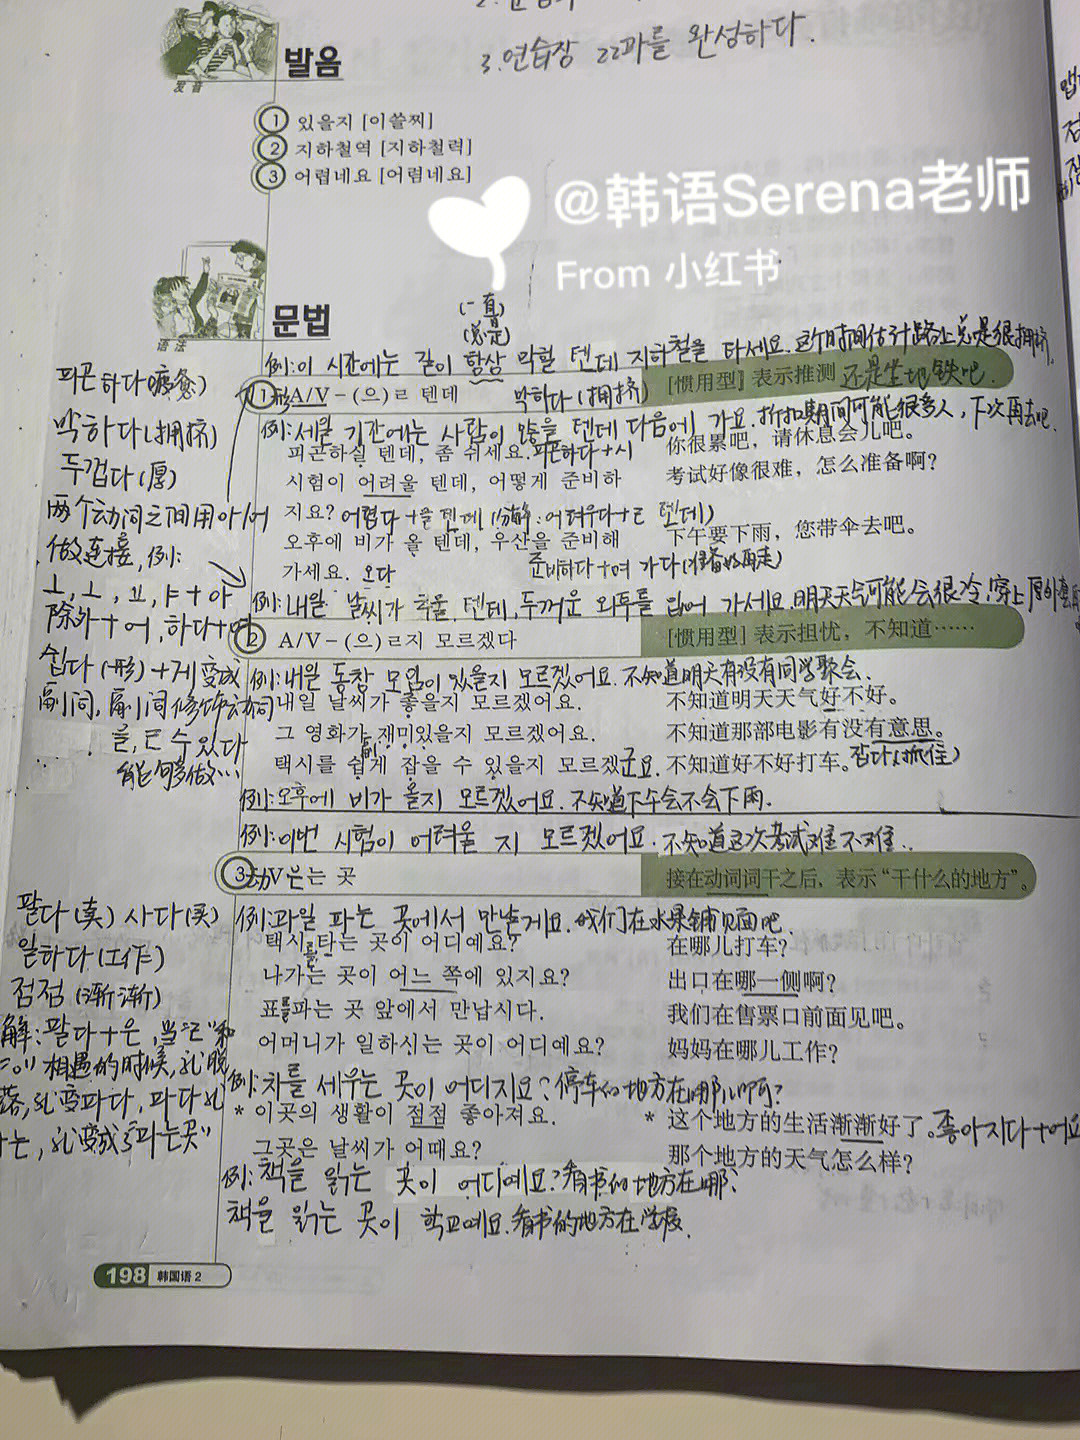 3.연습장 22과를 완성하다.
발음
发音
① 있을지 [이쓸찌]
② 지하철역 [지하철력]
③ 어렵네요 [어렴네요]
@韩语Serena老师
From 小红书
문법
语法
(一直)
(总是)
例:이 시간에는 길이 항상 막힐 텐데 지하철을 타세요.这个时间估计路上总是很拥挤,
① 形A/V-(으)ㄹ 텐데 막하다(拥挤) [惯用型] 表示推测 还是坐地铁吧.
例:세일 기간에는 사람이 많을 텐데 다음에 가요.折扣期间可能很多人,下次再去吧.
피곤하실 텐데, 좀 쉬세요.피곤하다+시 你很累吧，请休息会儿吧。
시험이 어려울 텐데, 어떻게 준비하 考试好像很难，怎么准备啊？
지요? 어렵다+을 텐데(分解:어려우다+ㄹ 텐데)
오후에 비가 올 텐데, 우산을 준비해 下午要下雨，您带伞去吧。
가세요. 오다 준비하다+여 가다(准备好再走)
例:내일 날씨가 추울 텐데,두꺼운 외투를 입어 가세요.明天天气可能会很冷,穿上厚外套
② A/V-(으)ㄹ지 모르겠다 [惯用型] 表示担忧，不知道……
例:내일 동창 모임이 있을지 모르겠어요.不知道明天有没有同学聚会.
내일 날씨가 좋을지 모르겠어요. 不知道明天天气好不好。
그 영화가 재미있을지 모르겠어요. 不知道那部电影有没有意思。
택시를 쉽게 잡을 수 있을지 모르겠군요. 不知道好不好打车。잡다(抓住)
副
例:오후에 비가 올지 모르겠어요.不知道下午会不会下雨.
例:이번 시험이 어려울 지 모르겠어요.不知道这次考试难不难.
③ 动V는 곳 接在动词词干之后，表示“干什么的地方”。
例:과일 파는 곳에서 만날게요.我们在水果铺见面吧.
택시를 타는 곳이 어디예요? 在哪儿打车?
나가는 곳이 어느 쪽에 있지요? 出口在哪一侧啊？
표를파는 곳 앞에서 만납시다. 我们在售票口前面见吧。
어머니가 일하시는 곳이 어디예요? 妈妈在哪儿工作？
例:차를 세우는 곳이 어디지요?停车的地方在哪儿啊?
* 이곳의 생활이 점점 좋아져요. * 这个地方的生活渐渐好了。좋아지다+어요
그곳은 날씨가 어때요? 那个地方的天气怎么样?
例:책을 읽는 곳이 어디예요?看书的地方在哪?
책을 읽는 곳이 학교예요.看书的地方在学校.
피곤하다(疲惫)
막하다(拥挤)
두껍다(厚)
两个动词之间用아/어
做连接,例:
ㅏ,ㅗ,ㅛ,ㅑ+아
除外+어,하다+여
쉽다(形)+게变成
副词,副词修饰动词
을,ㄹ 수 있다
能够做…
팔다(卖) 사다(买)
일하다(工作)
점점(渐渐)
解:팔다+은,当“ㄹ”和
“ㄴ”相遇的时候,ㄹ脱
落,就变파다,파다
는,就变成了“파는곳”
198 韩国语 2